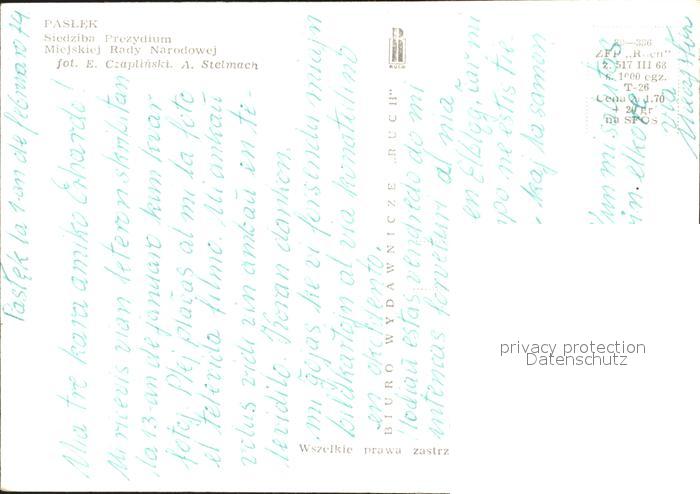 PASŁĘK
Siedziba Prezydium
Miejskiej Rady Narodowej
fot. E. Czapliński. A. Stelmach
RUCH
BIURO WYDAWNICZE „RUCH"
ZFP „Ruch"
z. 517 III 68
s. 1000 egz.
T-26
Cena zł 1.70
+ 20 gr
na SFOS
Wszelkie prawa zastrz
Pasłęk la 1-an de februaro 74
Mia tre kara amiko Erhardo!
Mi ricevis vian leteron skribitan
la 13-an de januaro kun kvar
fotoj. Plej plaĉas al mi la foto
el televida filmo. Mi ankaŭ
volus vidi vin ankaŭ en te-
levidilo. Koran dankon.
mi ĝojas ke vi forsendu miajn
bildkartojn al via konatulino
en
Hodiaŭ estas vendredo do mi
antemas forveturi al mia
en Elbląg, ĉar mi
povo ne estis tie
kaj la saman
Kun mi salutas
vin elkore
via
privacy protection
Datenschutz